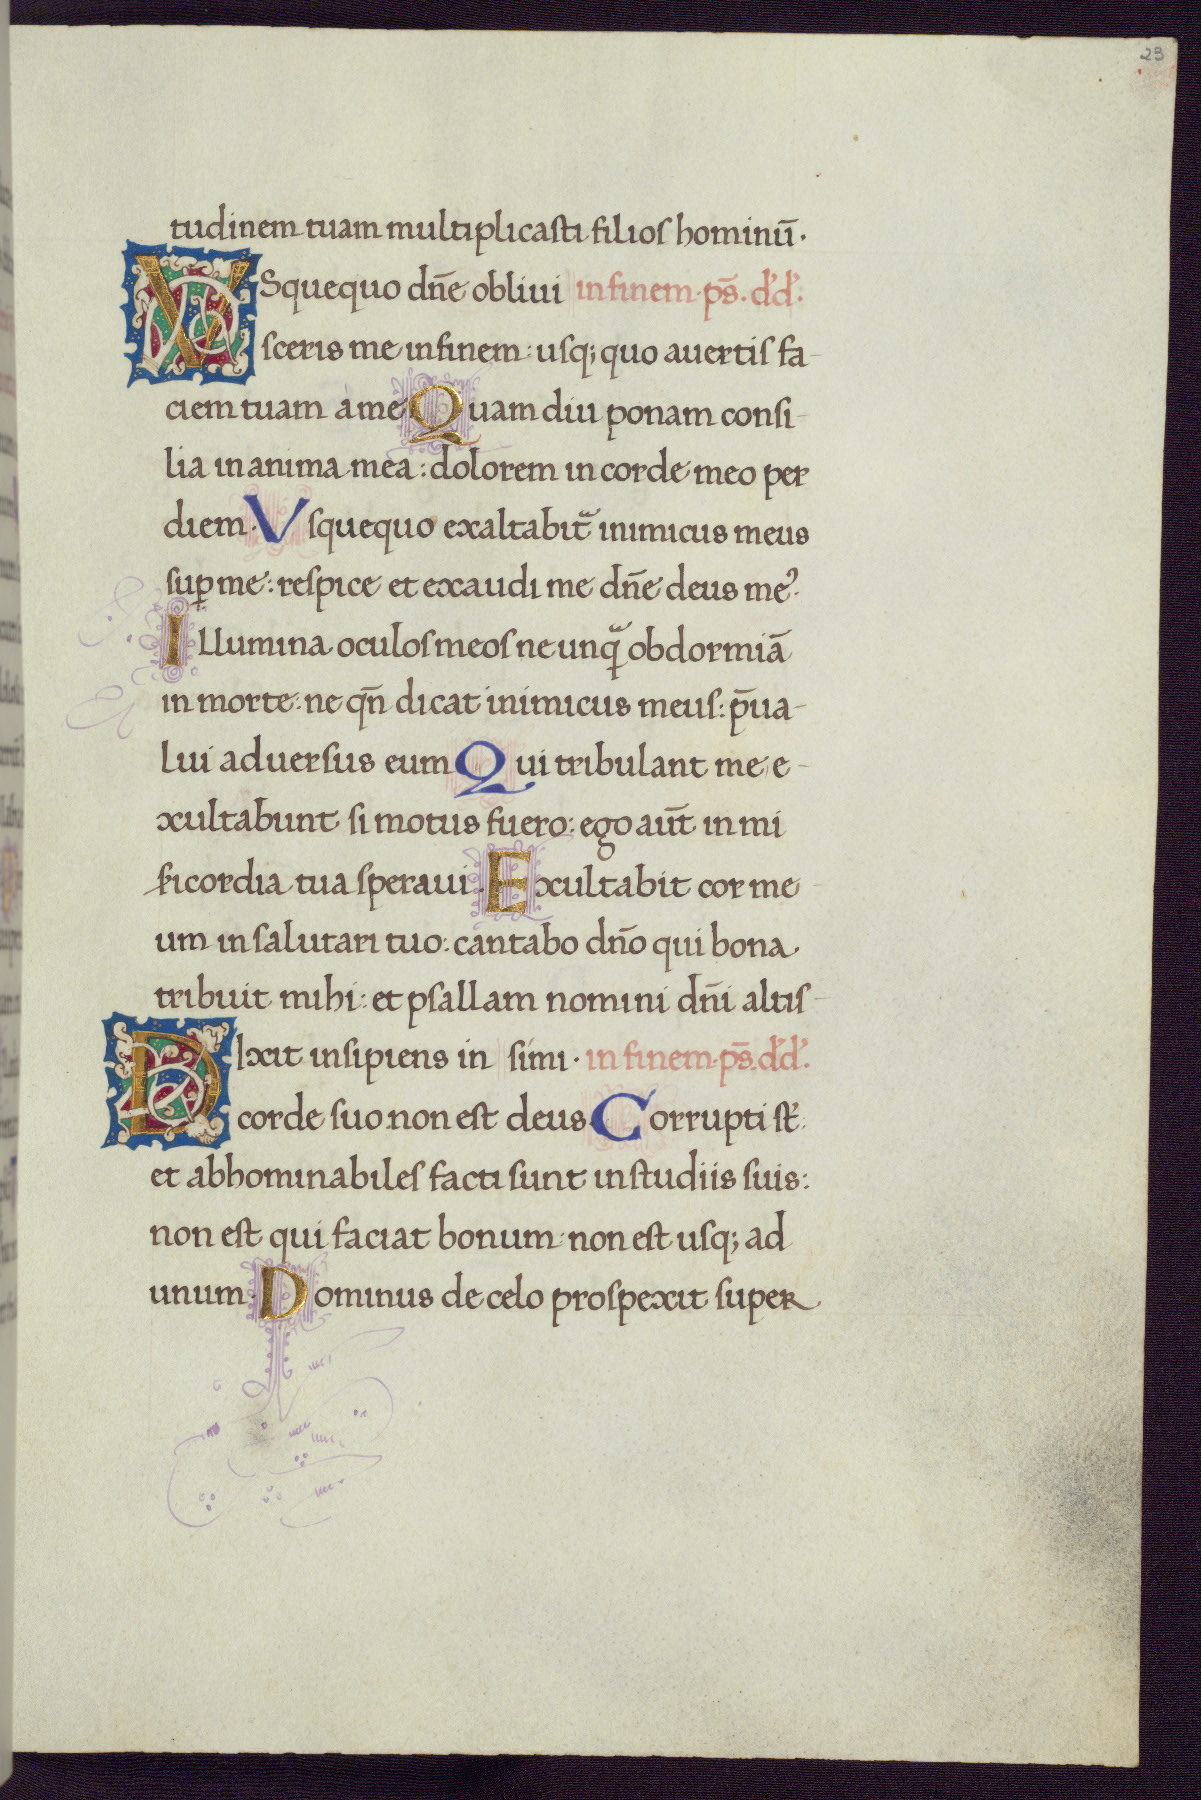 23
tudinem tuam multiplicasti filios hominū.
VSquequo dn̄e oblivi in finem. ps̄. d'd'.
sceris me in finem: usq; quo avertis fa-
ciem tuam à me Quam diu ponam consi-
lia in anima mea: dolorem in corde meo per
diem. Vsquequo exaltabit᷑ inimicus meus
suꝑ me: respice et exaudi me dn̄e deus me᾿.
Illumina oculos meos ne unq̃ obdormiā
in morte: ne qn̄ dicat inimicus meus: p̄va-
lui adversus eum Qui tribulant me e-
xultabunt si motus fuero: ego aut̄ in mi
sericordia tua speravi. Exultabit cor me-
um in salutari tuo: cantabo dn̄o qui bona
tribuit mihi: et psallam nomini dn̄i altis-
DIxit insipiens in simi. in finem. ps̄. d'd'.
corde suo non est deus. Corrupti st̄.
et abhominabiles facti sunt in studiis suis:
non est qui faciat bonum: non est usq; ad
unum. Dominus de celo prospexit super